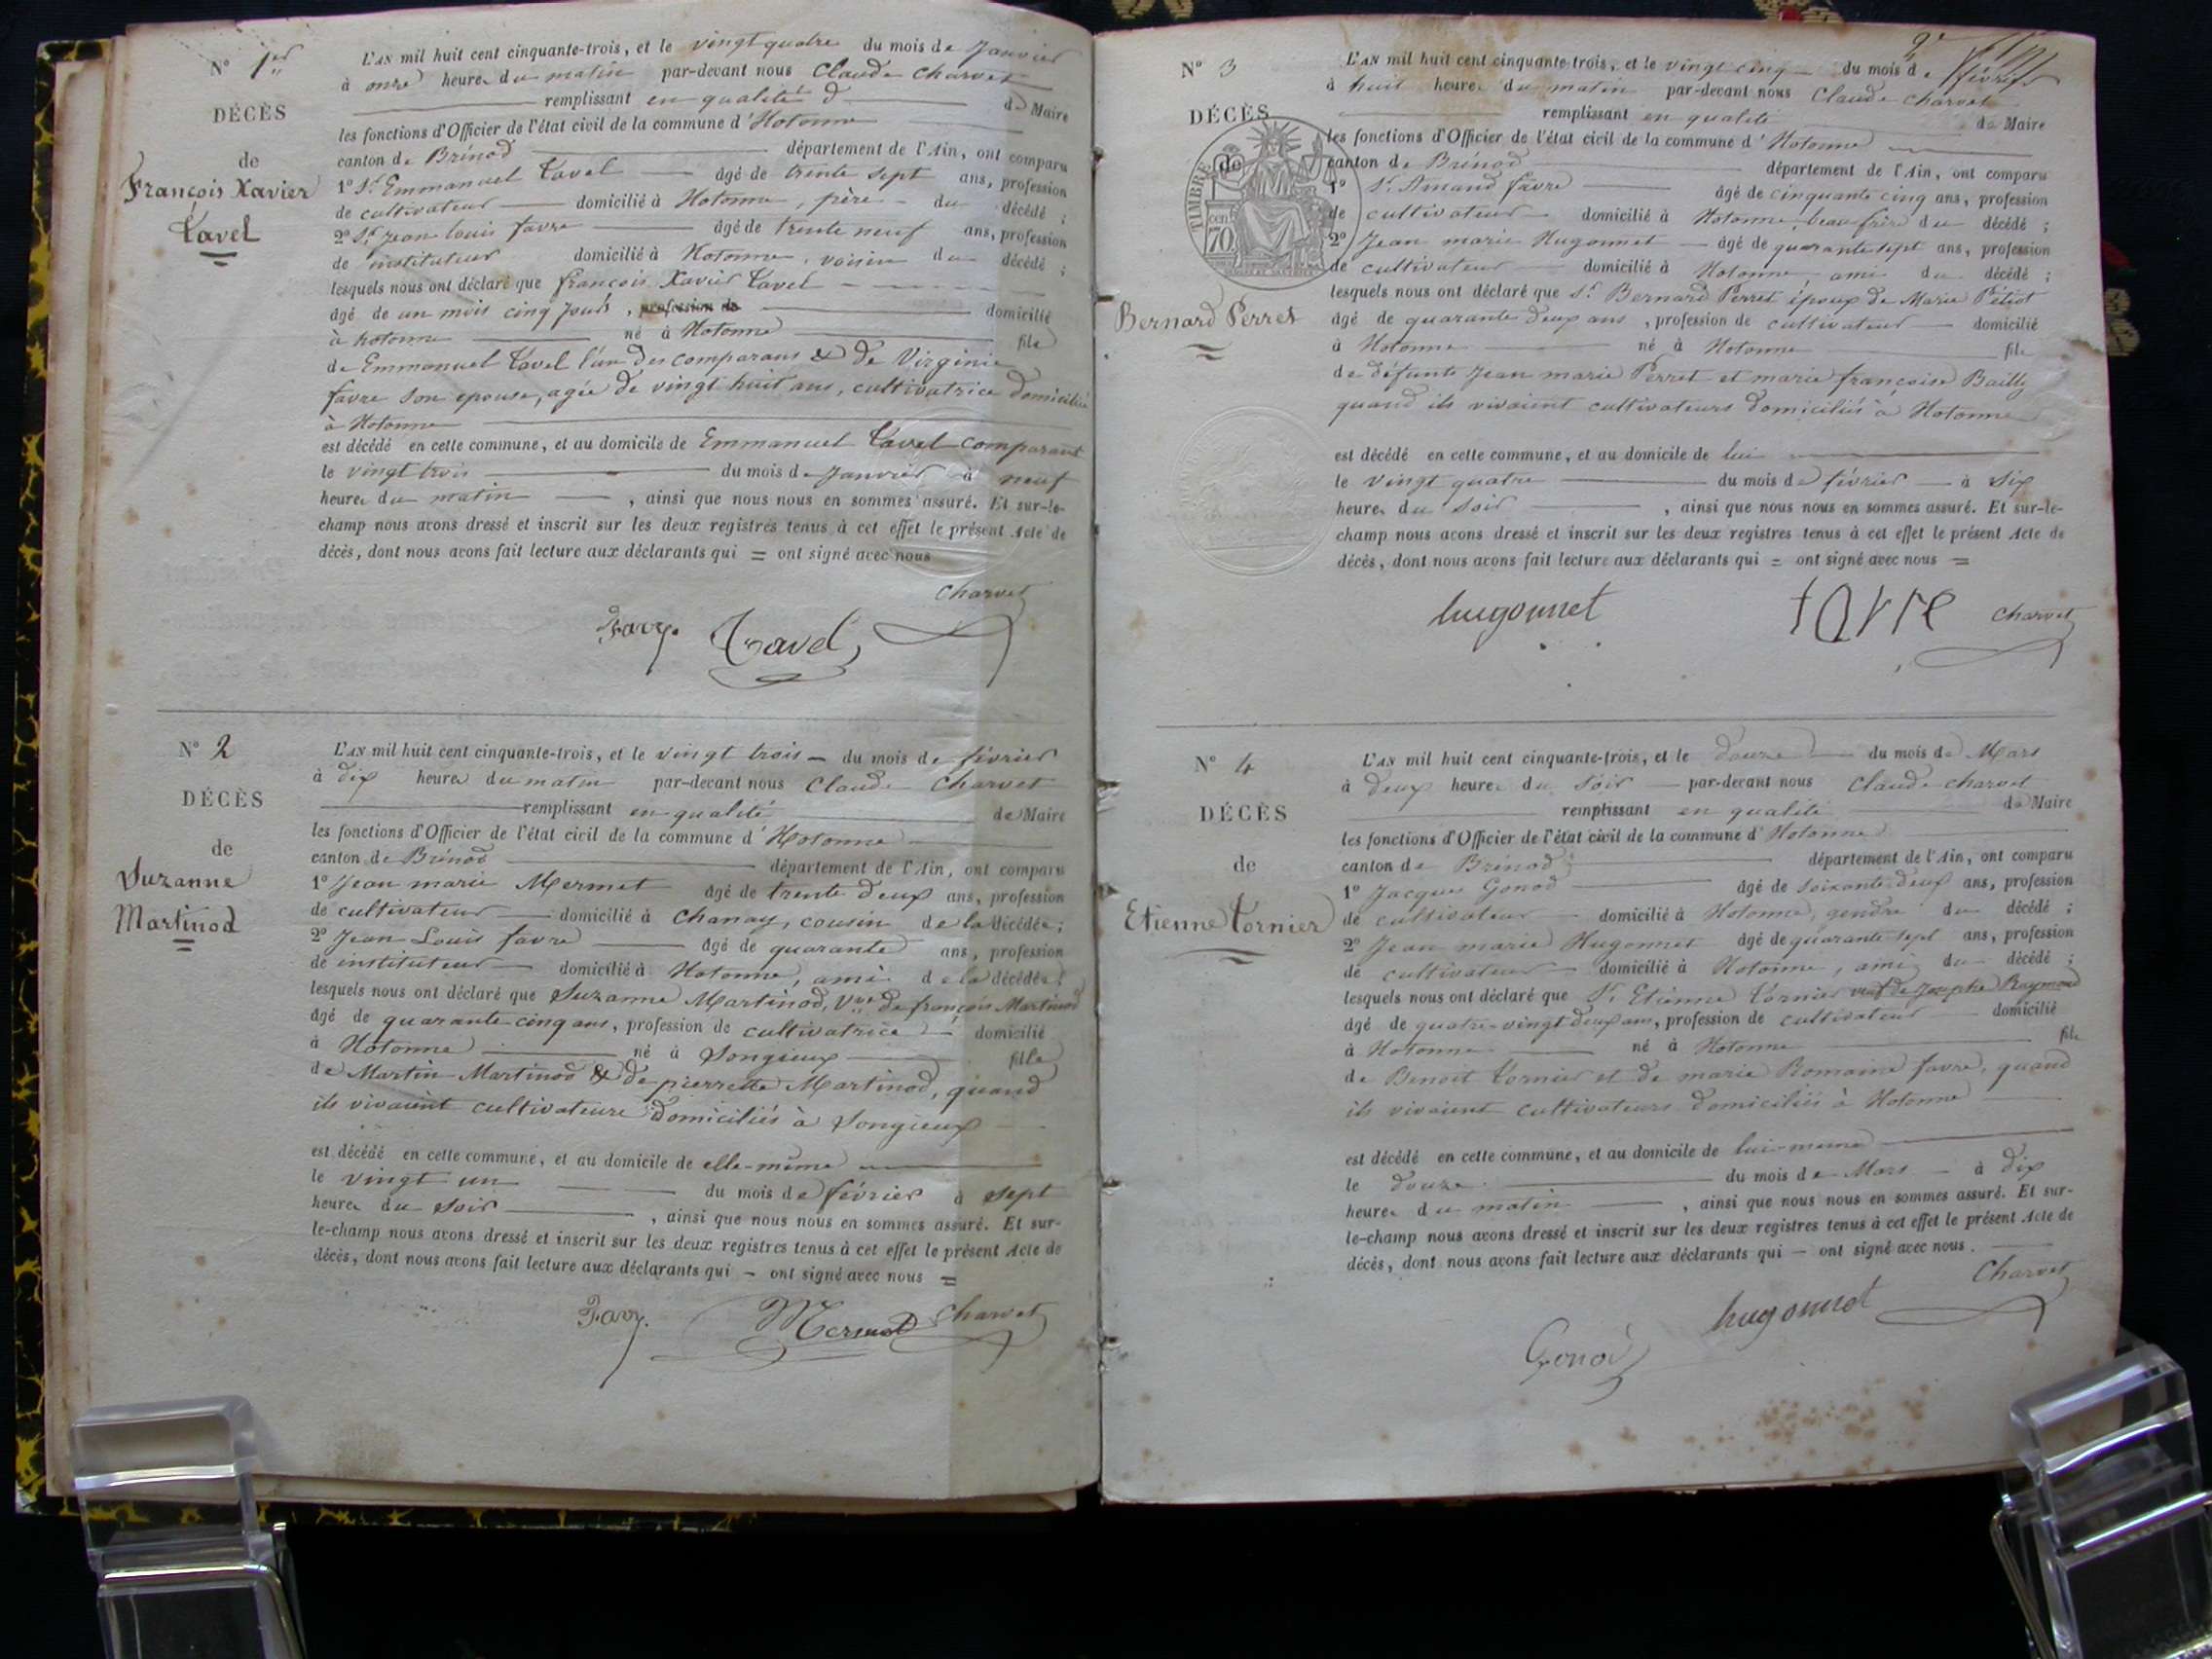 N° 1er
DÉCÈS
de
François Xavier
Tavel
L'AN mil huit cent cinquante-trois, et le vingt quatre du mois de Janvier
à onze heures du matin par-devant nous Claude Charvet
remplissant en qualité d de Maire
les fonctions d'Officier de l'état civil de la commune d'Hotonne
canton de Brénod département de l'Ain, ont comparu
1° Sr. Emmanuel Tavel âgé de trente sept ans, profession
de cultivateur domicilié à Hotonne, père du décédé ;
2° Sr. Jean louis favre âgé de trente neuf ans, profession
de instituteur domicilié à Hotonne, voisin du décédé ;
lesquels nous ont déclaré que françois Xavier Tavel
âgé de un mois cinq jours, profession de domicilié
à hotonne né à Hotonne fils
de Emmanuel Tavel l'un des comparans & de Virginie
favre son epouse, agée de vingt huit ans, cultivatrice domiciliée
à Hotonne
est décédé en cette commune, et au domicile de Emmanuel Tavel comparant
le vingt trois du mois de Janvier à neuf
heures du matin , ainsi que nous nous en sommes assuré. Et sur-le-
champ nous avons dressé et inscrit sur les deux registres tenus à cet effet le présent Acte de
décès, dont nous avons fait lecture aux déclarants qui = ont signé avec nous
Charvet
Favr. Tavel
N° 2
DÉCÈS
de
Suzanne
Martinod
L'AN mil huit cent cinquante-trois, et le vingt trois du mois de février
à dix heures du matin par-devant nous Claude Charvet
remplissant en qualité de Maire
les fonctions d'Officier de l'état civil de la commune d'Hotonne
canton de Brénod département de l'Ain, ont comparu
1° Jean marie Mermet âgé de trente deux ans, profession
de cultivateur domicilié à Chanay, cousin de la décédée ;
2° Jean Louis favre âgé de quarante ans, profession
de instituteur domicilié à Hotonne, ami de la décédée ;
lesquels nous ont déclaré que Suzanne Martinod, Vve de françois Martinod
âgé de quarante-cinq ans, profession de cultivatrice domicilié
à Hotonne né à Songieux fille
de Martin Martinod & de pierrette Martinod, quand
ils vivaient cultivateurs domiciliés à Songieux
est décédé en cette commune, et au domicile de elle-même
le vingt un du mois de février à sept
heures du soir , ainsi que nous nous en sommes assuré. Et sur-
le-champ nous avons dressé et inscrit sur les deux registres tenus à cet effet le présent Acte de
décès, dont nous avons fait lecture aux déclarants qui – ont signé avec nous =
Favr. Mermet Charvet
2e
N° 3
DÉCÈS
de
TIMBRE
70 cen
Bernard Perret
L'AN mil huit cent cinquante-trois, et le vingt cinq du mois de février
à huit heures du matin par-devant nous Claude Charvet
remplissant en qualité de Maire
les fonctions d'Officier de l'état civil de la commune d'Hotonne
canton de Brénod département de l'Ain, ont comparu
1° Sr. Amand favre âgé de cinquante cinq ans, profession
de cultivateur domicilié à Hotonne, beau frère du décédé ;
2° Jean marie Hugonnet âgé de quarante sept ans, profession
de cultivateur domicilié à Hotonne, ami du décédé ;
lesquels nous ont déclaré que Sr. Bernard Perret époux de Marie Pétiot
âgé de quarante deux ans, profession de cultivateur domicilié
à Hotonne né à Hotonne fils
de défunts Jean marie Perret et marie françoise Bailly
quand ils vivaient cultivateurs domiciliés à Hotonne
est décédé en cette commune, et au domicile de lui
le vingt quatre du mois de février à Six
heures du Soir , ainsi que nous nous en sommes assuré. Et sur-le-
champ nous avons dressé et inscrit sur les deux registres tenus à cet effet le présent Acte de
décès, dont nous avons fait lecture aux déclarants qui = ont signé avec nous =
hugonnet favre Charvet
N° 4
DÉCÈS
de
Etienne Tornier
L'AN mil huit cent cinquante-trois, et le douze du mois de Mars
à deux heures du Soir par-devant nous Claude Charvet
remplissant en qualité de Maire
les fonctions d'Officier de l'état civil de la commune d'Hotonne
canton de Brénod département de l'Ain, ont comparu
1° Jacques Gonod âgé de soixante-deux ans, profession
de cultivateur domicilié à Hotonne, gendre du décédé ;
2° Jean marie Hugonnet âgé de quarante sept ans, profession
de cultivateur domicilié à Hotonne, ami du décédé ;
lesquels nous ont déclaré que Sr. Etienne Tornier veuf de Josephe Raymond
âgé de quatre-vingt deux ans, profession de cultivateur domicilié
à Hotonne né à Hotonne fils
de Benoit Tornier et de marie Romaine favre, quand
ils vivaient cultivateurs domiciliés à Hotonne
est décédé en cette commune, et au domicile de lui-meme
le douze du mois de Mars à dix
heures du matin , ainsi que nous nous en sommes assuré. Et sur-
le-champ nous avons dressé et inscrit sur les deux registres tenus à cet effet le présent Acte de
décès, dont nous avons fait lecture aux déclarants qui – ont signé avec nous.
Charvet
hugonnet
Gonod